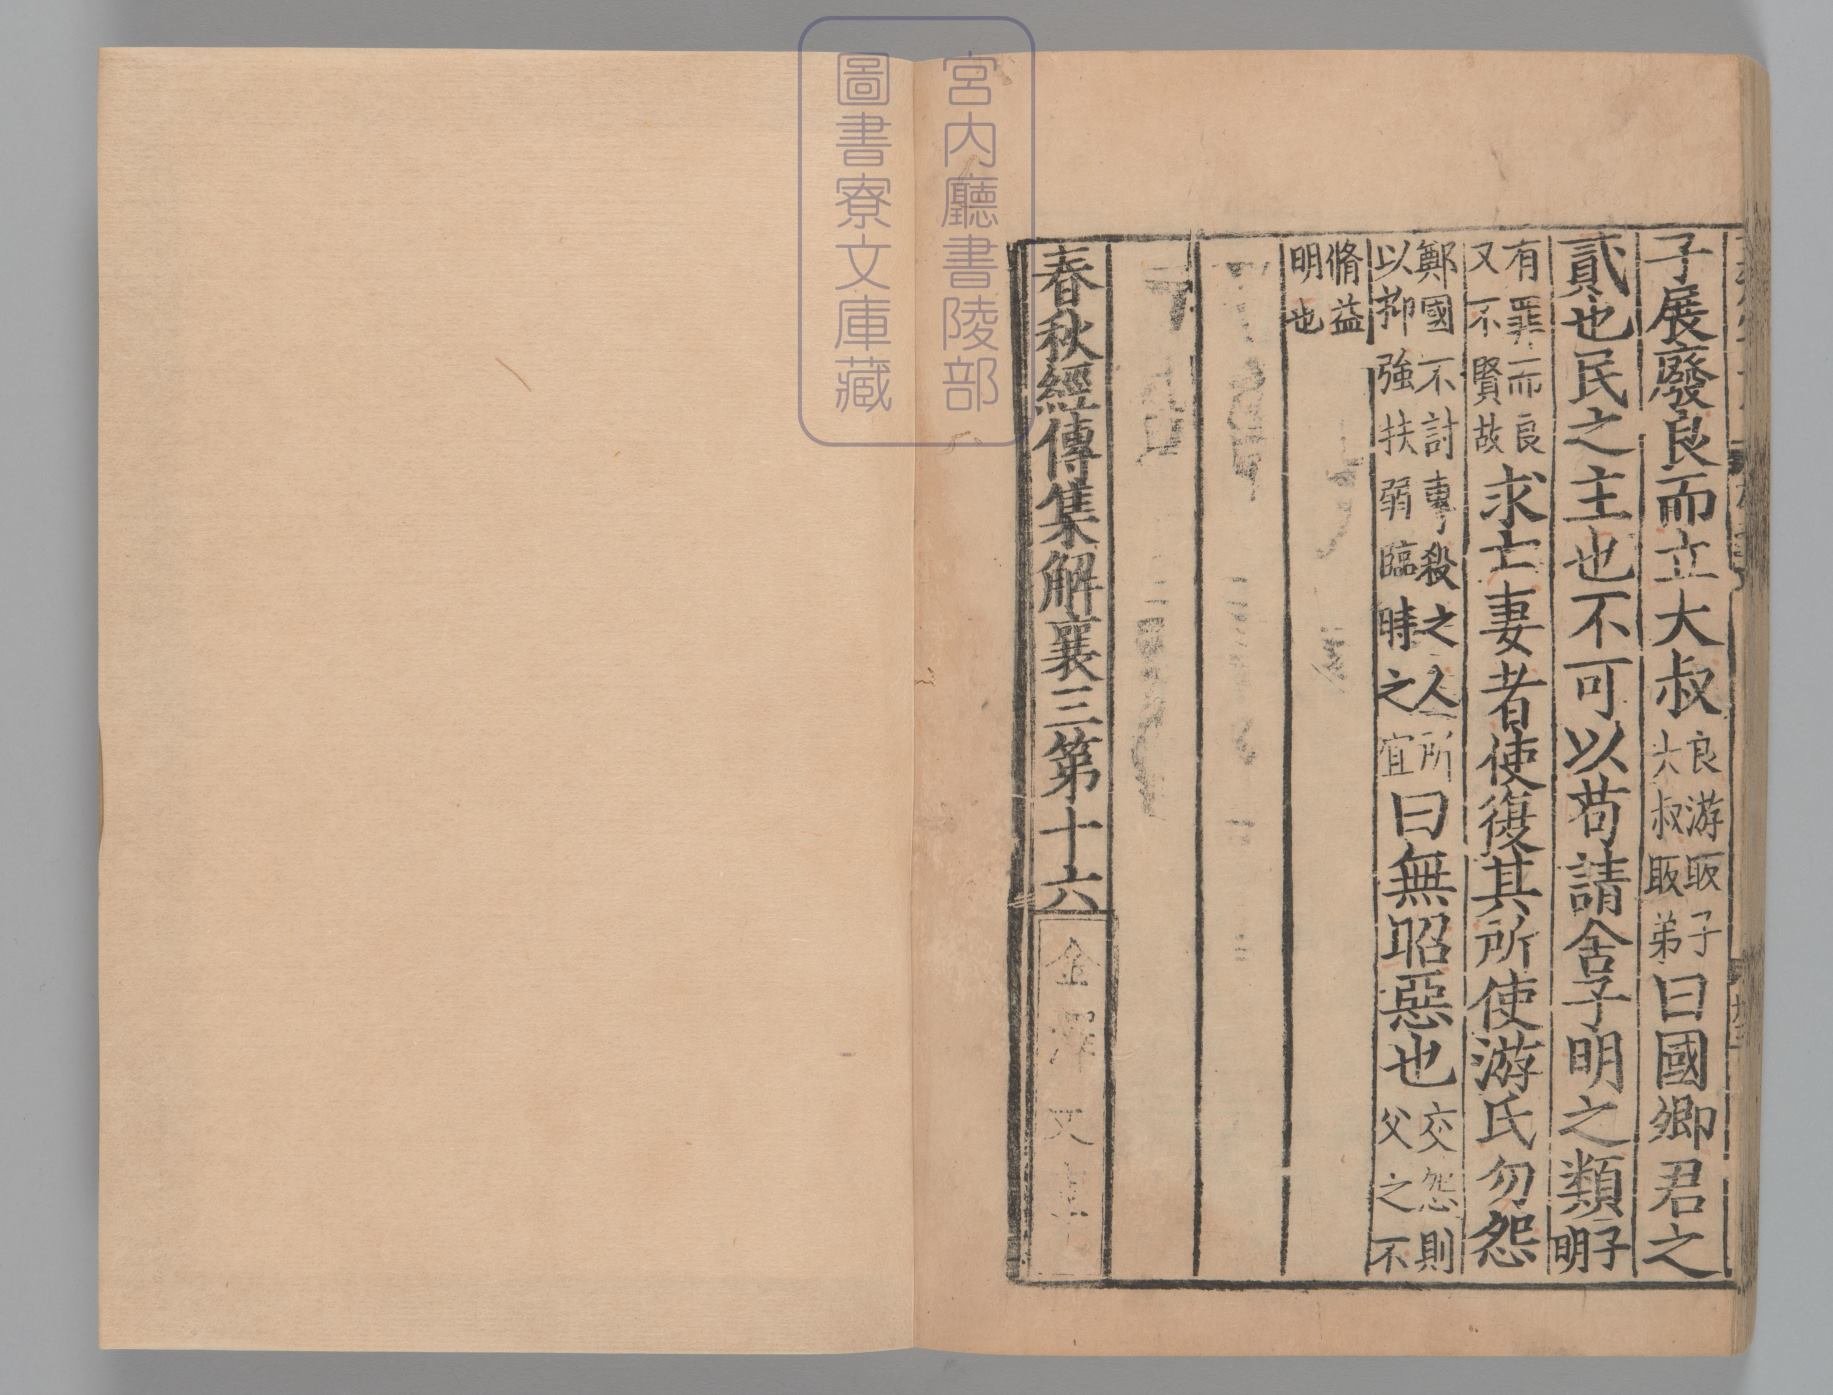 子展廢良而立大叔良游販子大叔販弟曰國卿君之
貳也民之主也不可以苟請舍子明之類子明
有罪而良又不賢故求亡妻者使復其所使游氏勿怨
鄭國不討專殺之人所以抑強扶弱臨時之宜曰無昭惡也交怨則父之不
脩益明也
春秋經傳集解襄三第十六
金澤文庫
宮内廳書陵部
圖書寮文庫藏